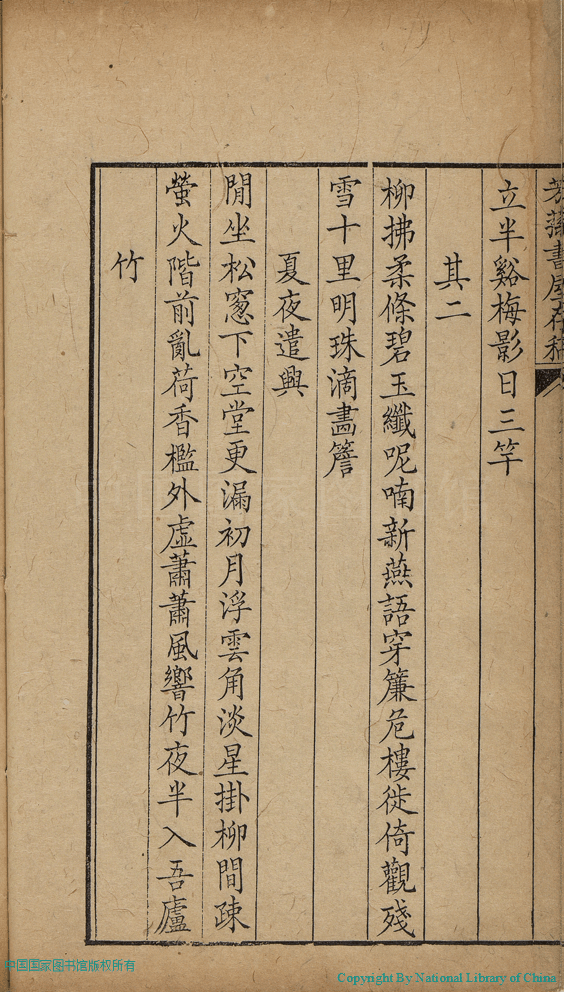 芳蓀書屋存稿
立半谿梅影日三竿
其二
柳拂柔條碧玉纖呢喃新燕語穿簾危樓徙倚觀殘
雪十里明珠滴畵簷
夏夜遣興
閒坐松窓下空堂更漏初月浮雲角淡星掛柳間疎
螢火階前亂荷香檻外虛蕭蕭風響竹夜半入吾廬
竹
中国国家图书馆版权所有
Copyright By National Library of China